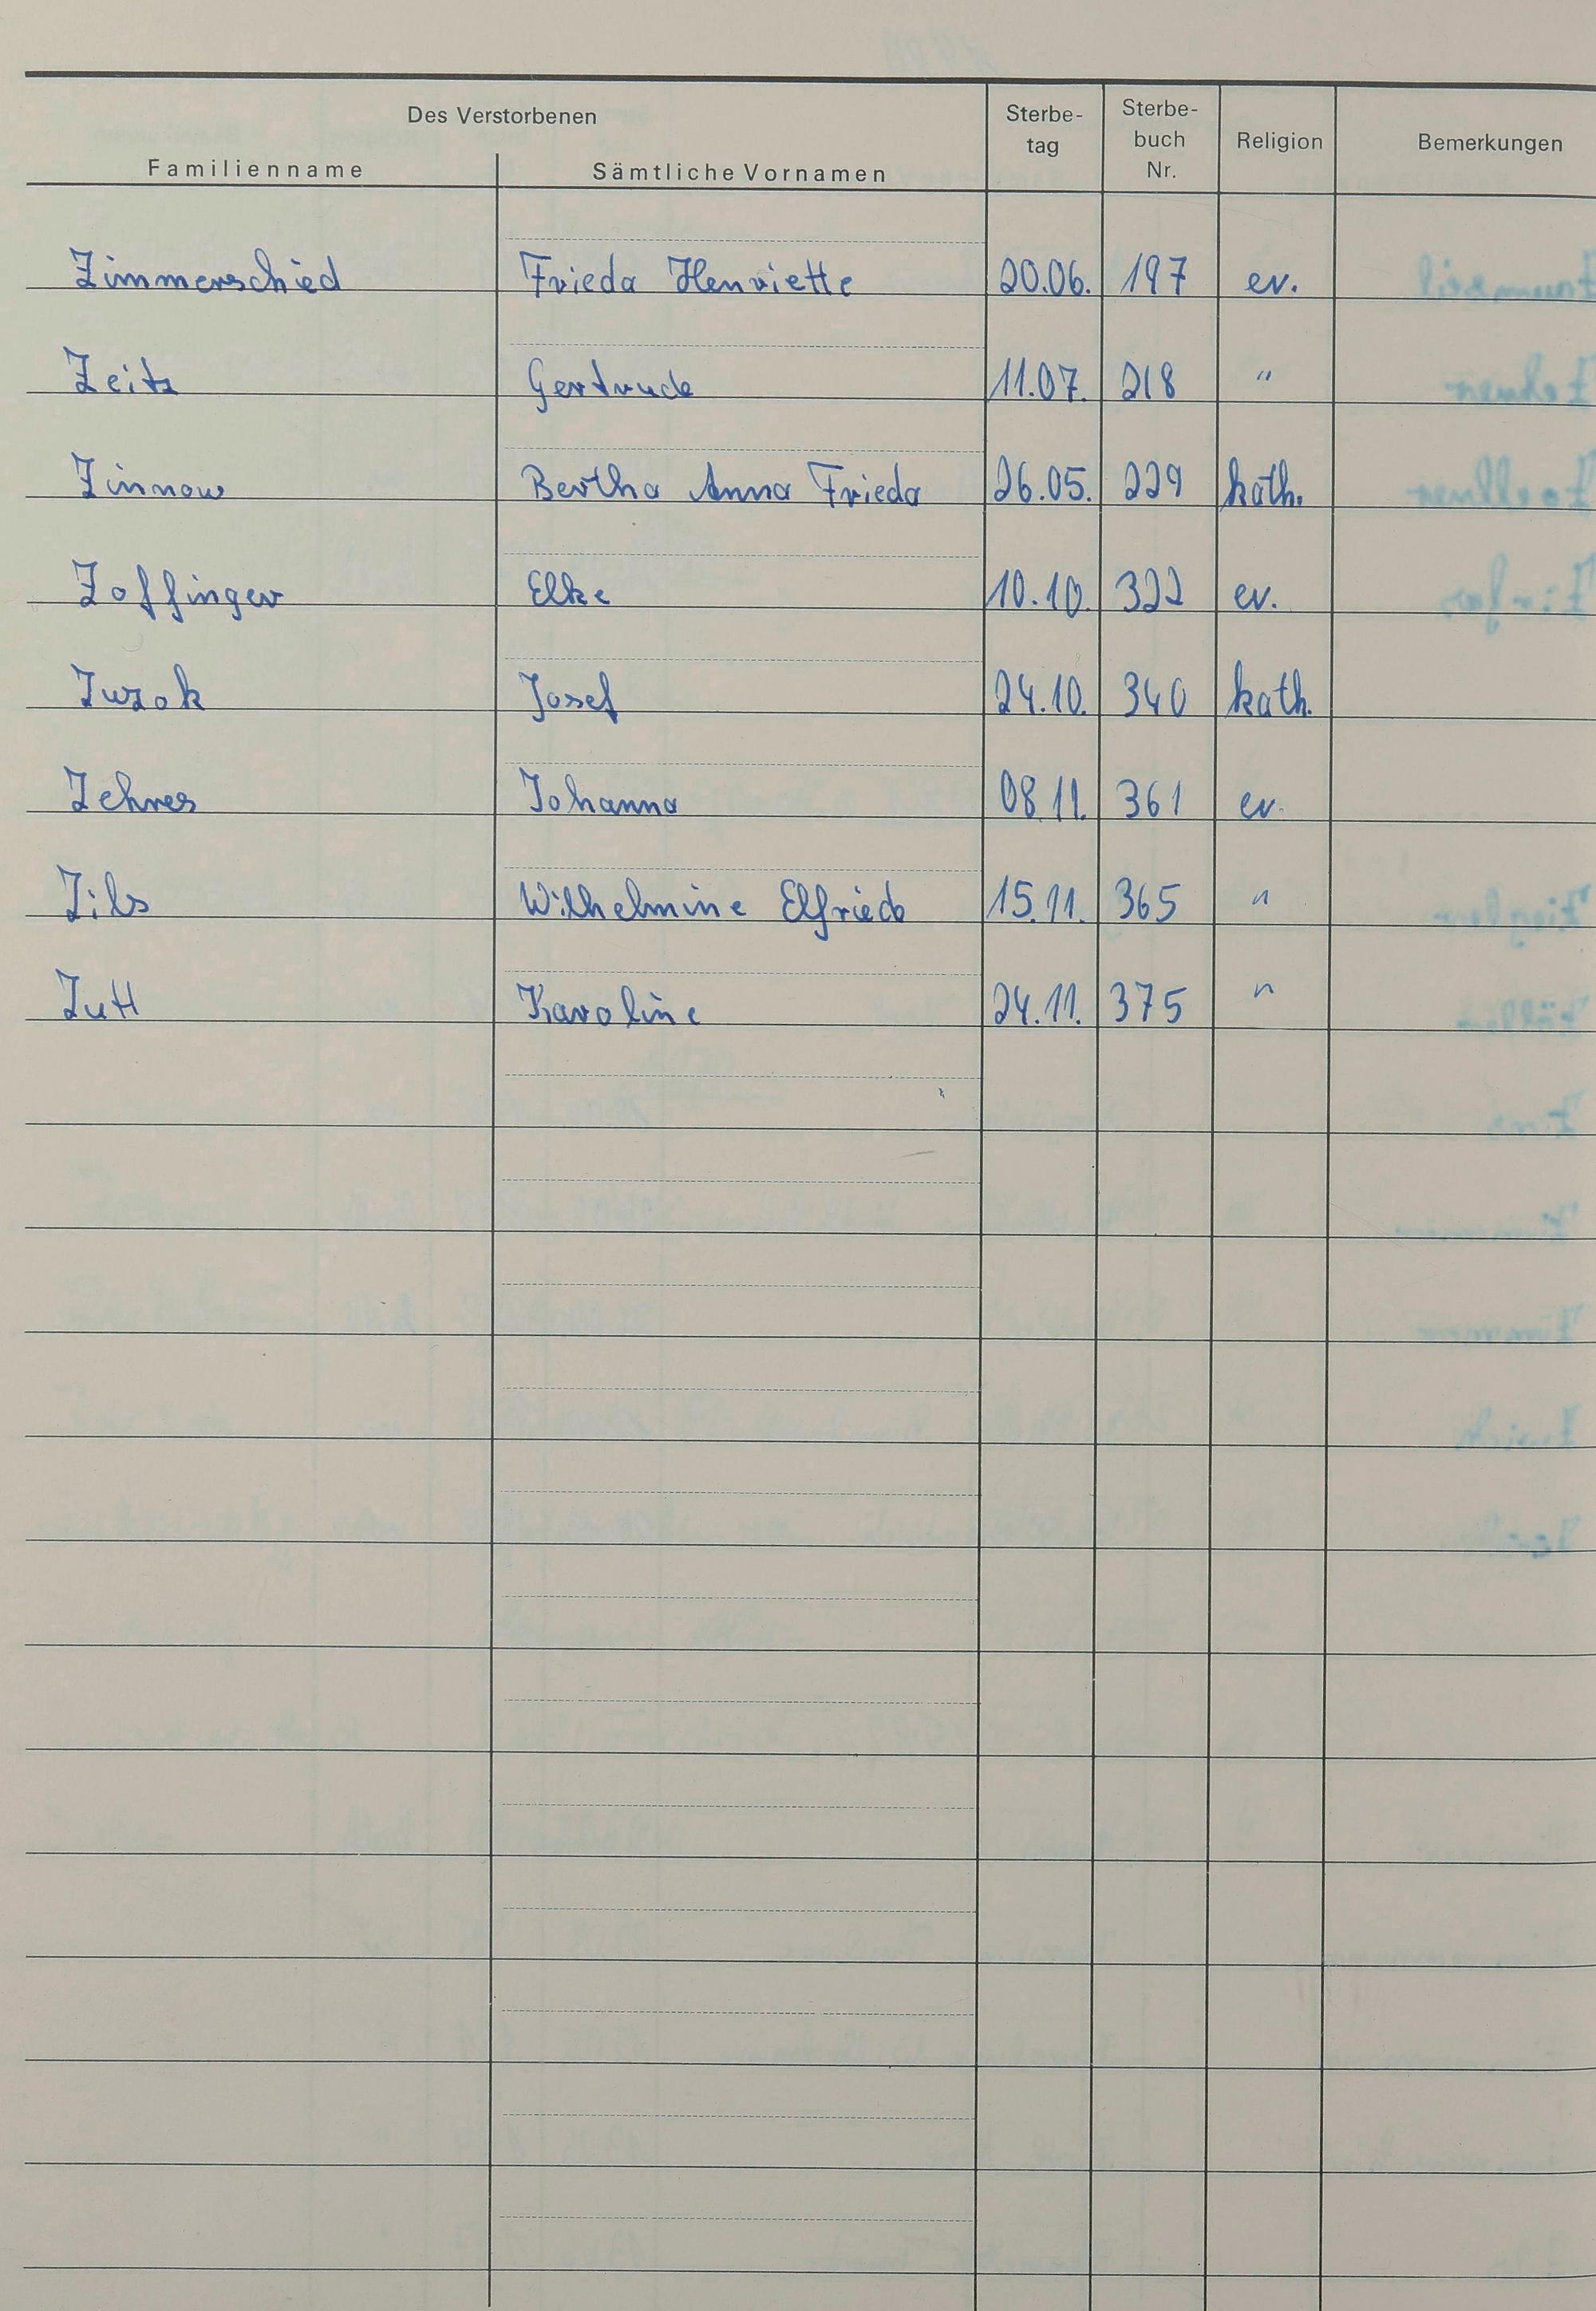 Des Verstorbenen
Familienname Sämtliche Vornamen Sterbe-tag Sterbe-buch Nr. Religion Bemerkungen
Zimmerschied Frieda Henriette 20.06. 197 ev.
Zeitz Gertrude 11.07. 218 "
Zinnow Bertha Anna Frieda 26.05. 229 kath.
Zoffinger Elke 10.10. 322 ev.
Zwzok Josef 24.10. 340 kath.
Zehres Johanna 08.11. 361 ev.
Zils Wilhelmine Elfriede 15.11. 365 "
Zutt Karoline 24.11. 375 "